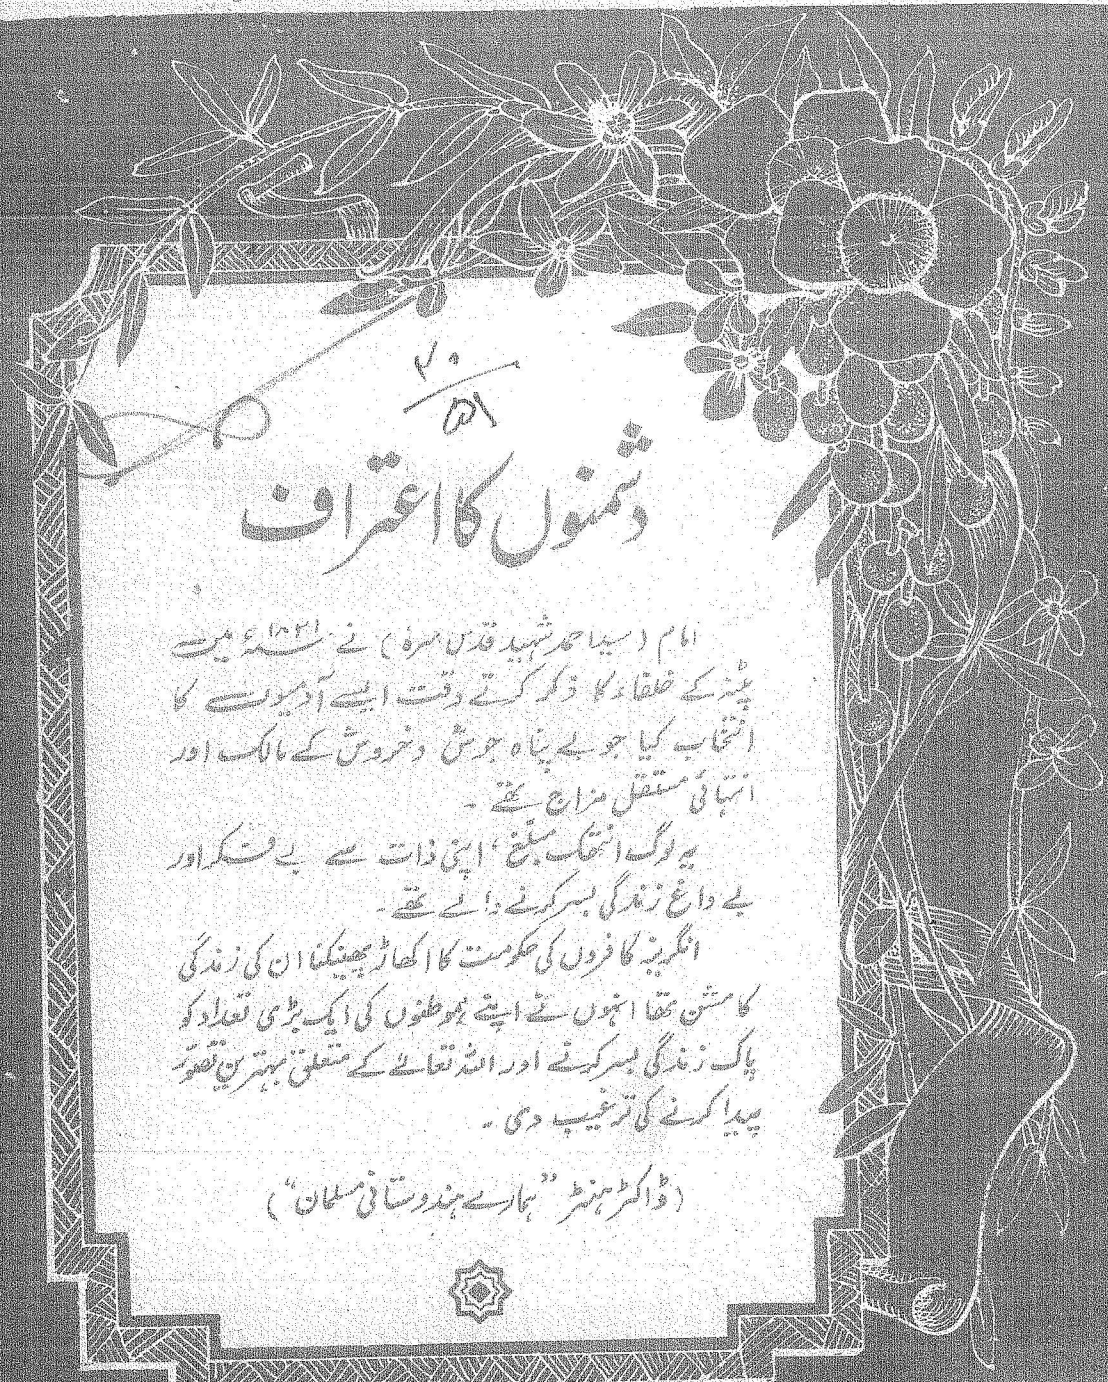 ۳۰
۵۱
دشمنوں کا اعتراف
امام (سید احمد شہید قدس سرہٗ) نے ۱۸۲۱ء میں
پٹنہ کے خلفاء کا ذکر کرتے وقت ایسے آدمیوں کا
انتخاب کیا جو بے پناہ جوش و خروش کے مالک اور
انتہائی مستقل مزاج تھے ۔
یہ لوگ انتھک مبلغ، اپنی ذات سے بے فکر اور
بے داغ زندگی بسر کرنے والے تھے ۔
انگریز کافروں کی حکومت کا اکھاڑ پھینکنا ان کی زندگی
کا مشن تھا انہوں نے اپنے ہموطنوں کی ایک بڑی تعداد کو
پاک زندگی بسر کرنے اور اللہ تعالےٰ کے متعلق بہترین تصور
پیدا کرنے کی ترغیب دی ۔
(ڈاکٹر ہنٹر "ہمارے ہندوستانی مسلمان")